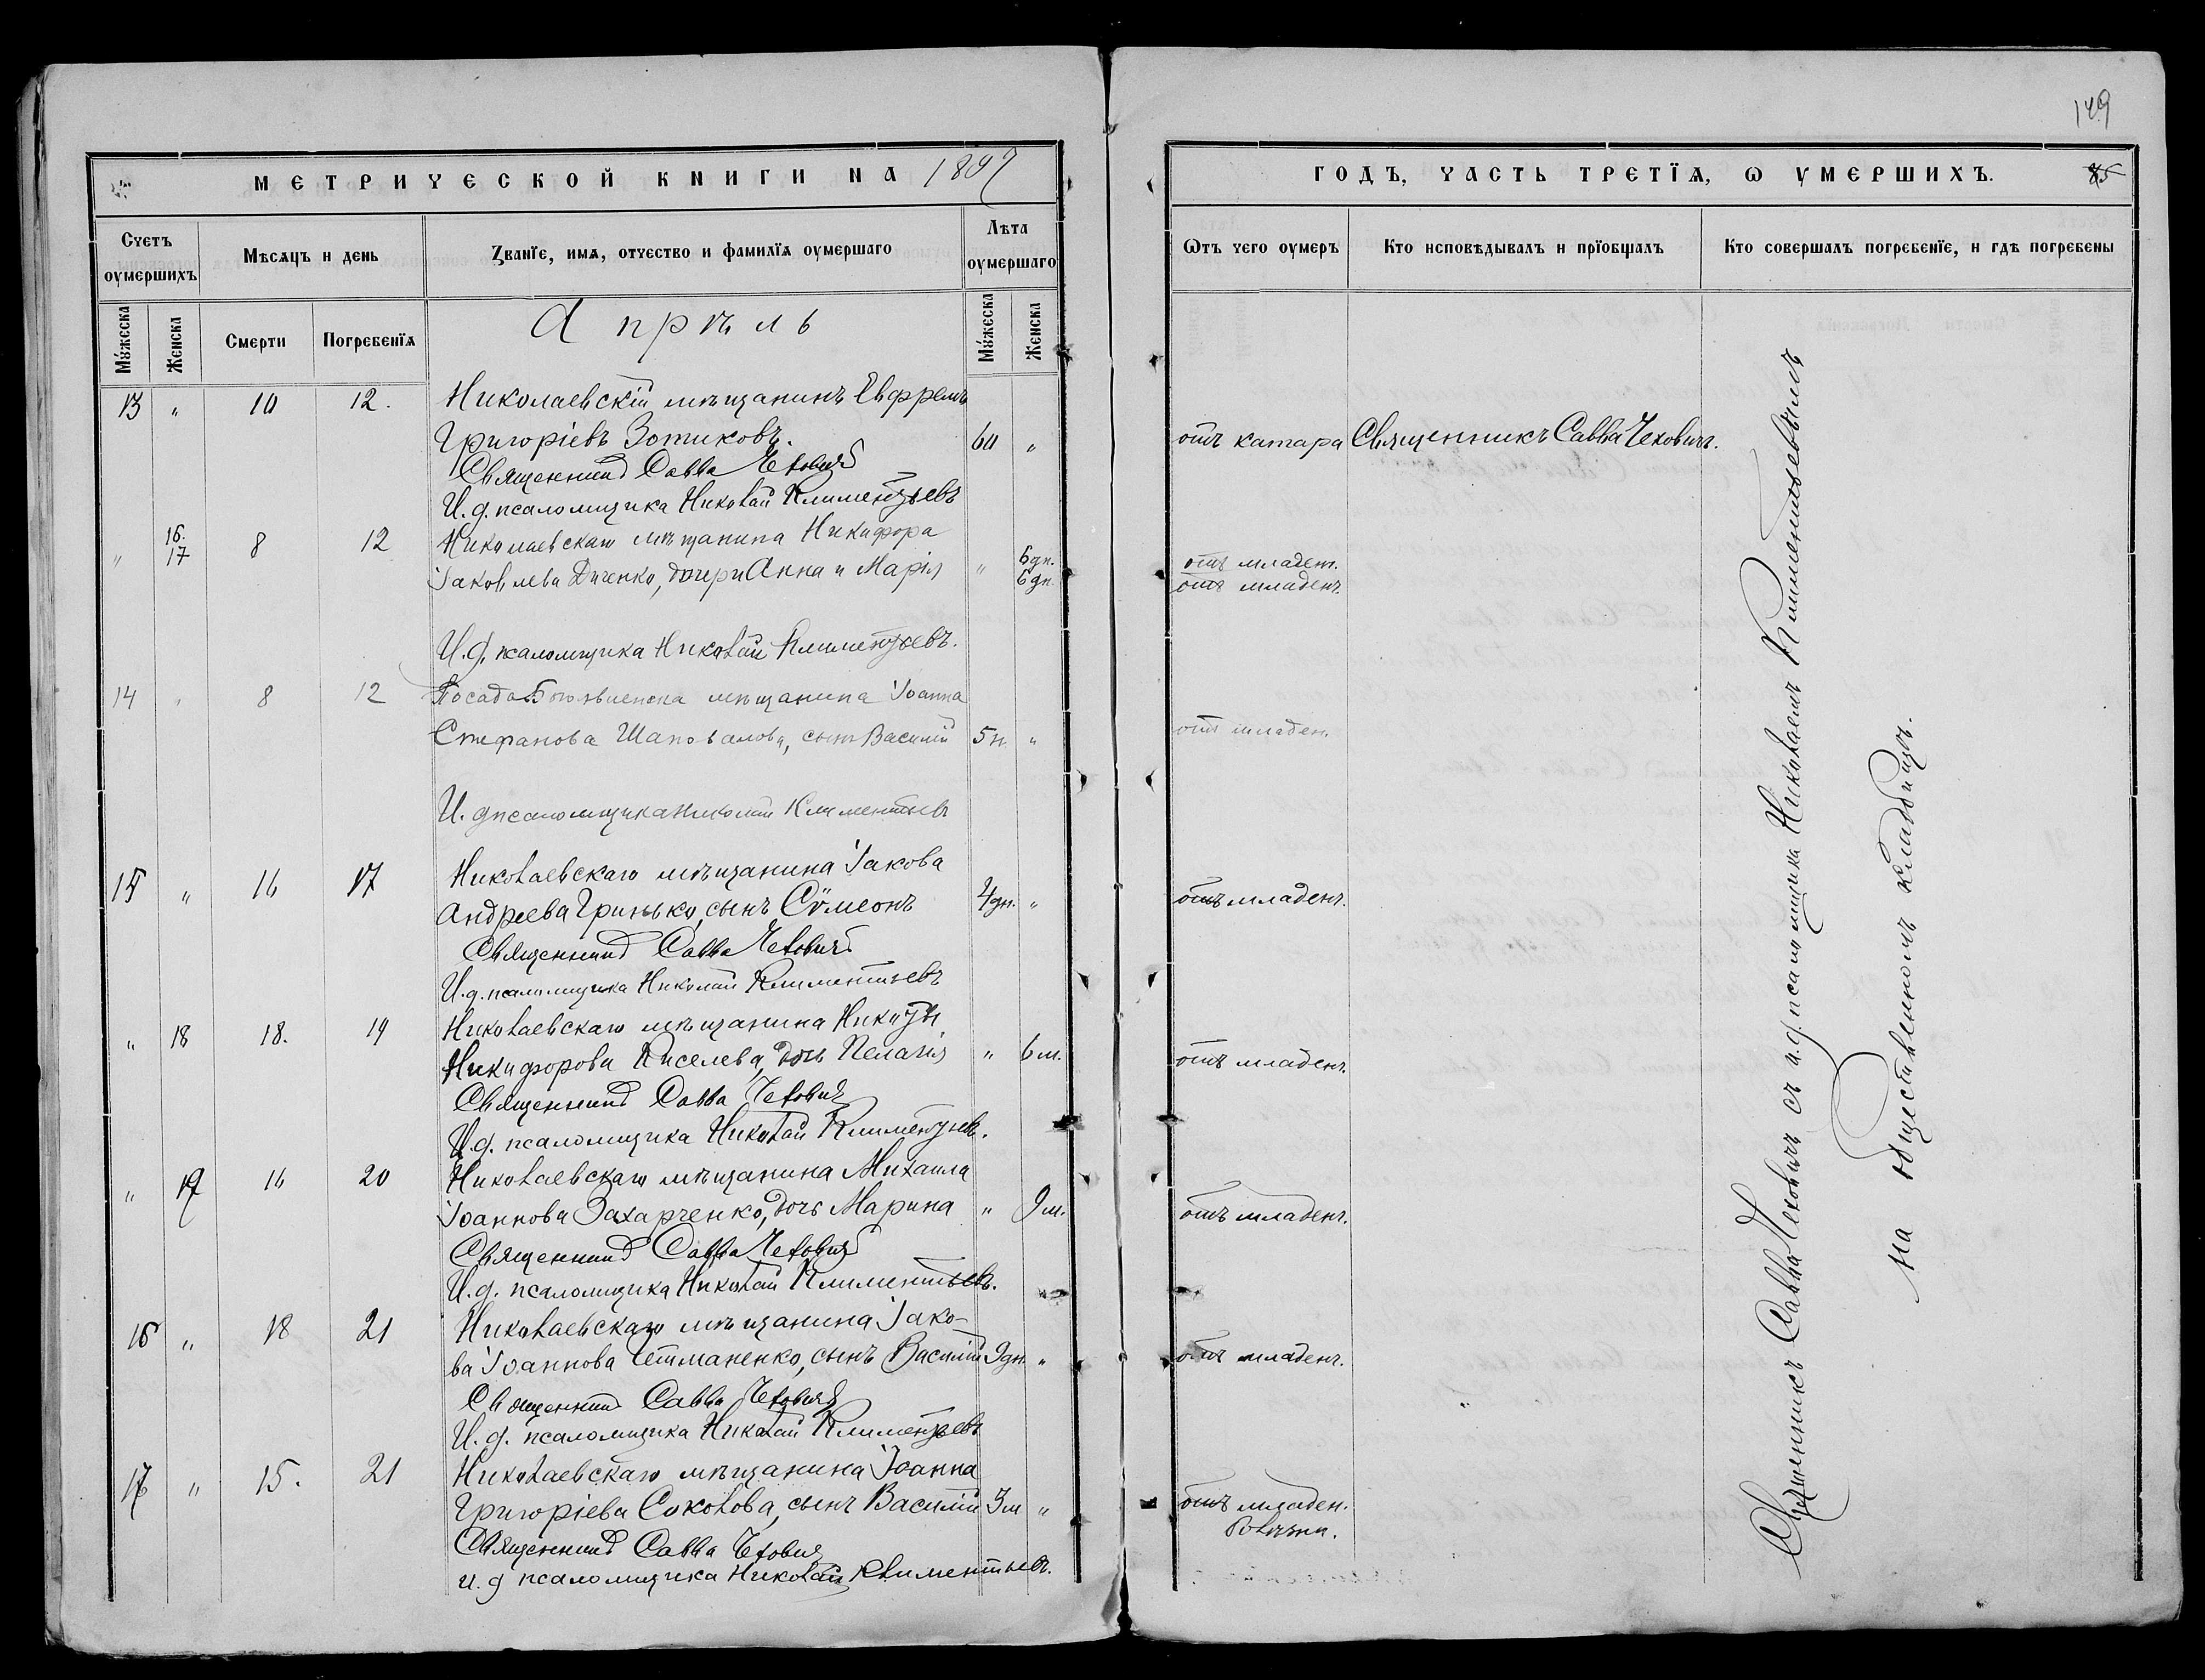 149
МЕТРИЧЕСКОЙ КНИГИ НА 1897
ГОДЪ, ЧАСТЬ ТРЕТІѦ, Ѡ ОУМЕРШИХЪ.
85
Счетъ оумершихъ
Мѣсѧцъ и день
Ꙁванїе, имѧ, отчество и фамилїѧ оумершаго
Лѣта оумершаго
Ѡтъ чего оумеръ
Кто исповѣдывалъ и прїобщалъ
Кто совершалъ погребенїе, и гдѣ погребены
Мꙋжеска
Женска
Смерти
Погребенїѧ
Мꙋжеска
Женска
Апрѣль
13 " 10 12. Николаевскій мѣщанинъ Евфремъ
Григоріевъ Зотиковъ. 60 " отъ катара Священникъ Савва Чеховичъ.
Священникъ Савва Чеховичъ
И. д. псаломщика Николай Климентьевъ
" 16. 17 8 12 Николаевскаго мѣщанина Никифора
Іаковлева Дяченко, дочери Анна и Марія " 6 дн. 6 дн. отъ младен.
отъ младенч.
И. д. псаломщика Николай Климентьевъ.
14 " 8 12 Посада Богоявленска мѣщанина Іоанна
Стефанова Шаповалова, сынъ Василій 5 н. " отъ младен.
И. д псаломщика Николай Климентьевъ
15 " 16 17 Николаевскаго мѣщанина Іакова
Андреева Гринько, сынъ Сѵмеонъ 4 дн. " отъ младенч.
Священникъ Савва Чеховичъ
И. д. псаломщика Николай Климентьевъ
" 18 18. 19 Николаевскаго мѣщанина Никиты
Никифорова Киселева, дочь Пелагія " 6 м. отъ младенч.
Священникъ Савва Чеховичъ
И. д. псаломщика Николай Климентьевъ.
" 19 16 20 Николаевскаго мѣщанина Михаила
Іоаннова Захарченко, дочь Марина " 9 м. отъ младенч.
Священникъ Савва Чеховичъ
И. д. псаломщика Николай Климентьевъ.
16 " 18 21 Николаевскаго мѣщанина Іако-
ва Іоаннова Гетманенко, сынъ Василій 9 дн. " отъ младенч.
Священникъ Савва Чеховичъ
И. д. псаломщика Николай Климентьевъ
17 " 15. 21 Николаевскаго мѣщанина Іоанна
Григоріева Соколова, сынъ Василій 3 м " отъ младен.
болѣзни.
Священникъ Савва Чеховичъ
и. д псаломщика Николай Климентьевъ.
Священникъ Савва Чеховичъ съ и. д. псаломщика Николаемъ Климентьевымъ
на общественномъ кладбищѣ.